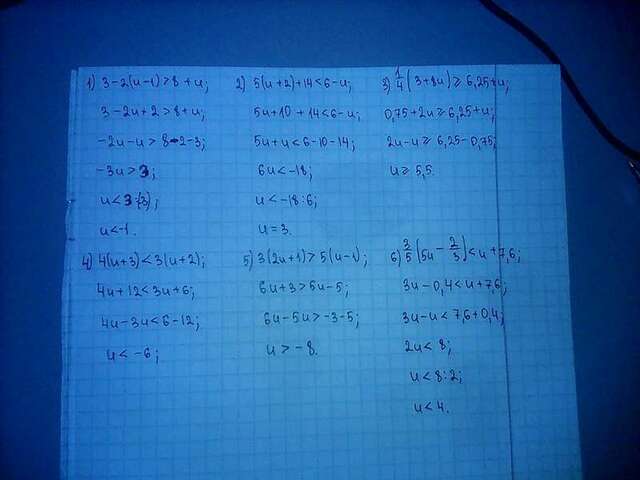 1) 3-2(u-1)>8+u;
3-2u+2>8+u;
-2u-u>8-2-3;
-3u>3;
u<3:(-3);
u<-1.
2) 5(u+2)+14<6-u;
5u+10+14<6-u;
5u+u<6-10-14;
6u<-18;
u<-18:6;
u=3.
3) 1/4(3+8u)≥6,25+u;
0,75+2u≥6,25+u;
2u-u≥6,25-0,75;
u≥5,5.
4) 4(u+3)<3(u+2);
4u+12<3u+6;
4u-3u<6-12;
u<-6;
5) 3(2u+1)>5(u-1);
6u+3>5u-5;
6u-5u>-3-5;
u>-8.
6) 3/5(5u-2/3)<u+7,6;
3u-0,4<u+7,6;
3u-u<7,6+0,4;
2u<8;
u<8:2;
u<4.